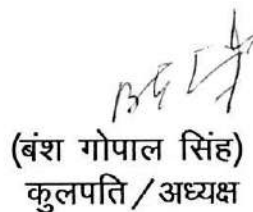 (बंश गोपाल सिंह)
कुलपति/अध्यक्ष